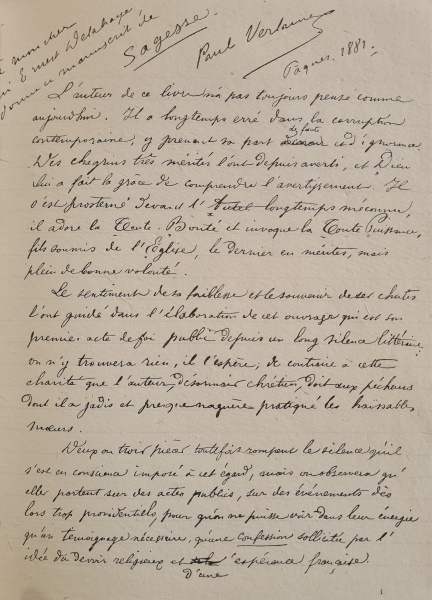 mon cher
Ernest Delahaye
ce manuscrit de
Sagesse.
Paul Verlaine
Pâques. 1881.
L'auteur de ce livre n'a pas toujours pensé comme
aujourd'hui. Il a longtemps erré dans la corruption
contemporaine, y prenant sa part de faute et d'ignorance.
Des chagrins très mérités l'ont depuis averti, et Dieu
lui a fait la grâce de comprendre l'avertissement. Il
s'est prosterné devant l'Autel longtemps méconnu,
il adore la Toute-Bonté et invoque la Toute Puissance,
fils soumis de l'Église, le dernier en mérites, mais
plein de bonne volonté.
Le sentiment de sa faiblesse et le souvenir de ses chutes
l'ont guidé dans l'élaboration de cet ouvrage qui est son
premier acte de foi public depuis un long silence littéraire:
on n'y trouvera rien, il l'espère, de contraire à cette
charité que l'auteur, désormais chrétien, doit aux pécheurs
dont il a jadis et presque naguère pratiqué les haïssables
mœurs.
Deux ou trois pièces toutefois rompent le silence qu'il
s'est en conscience imposé à cet égard, mais on observera qu'
elles portent sur des actes publics, sur des événements dès
lors trop providentiels, pour qu'on ne puisse voir dans leur énergie
qu'un témoignage nécessaire, qu'une confession sollicitée par l'
idée du devoir religieux et d'une espérance française.